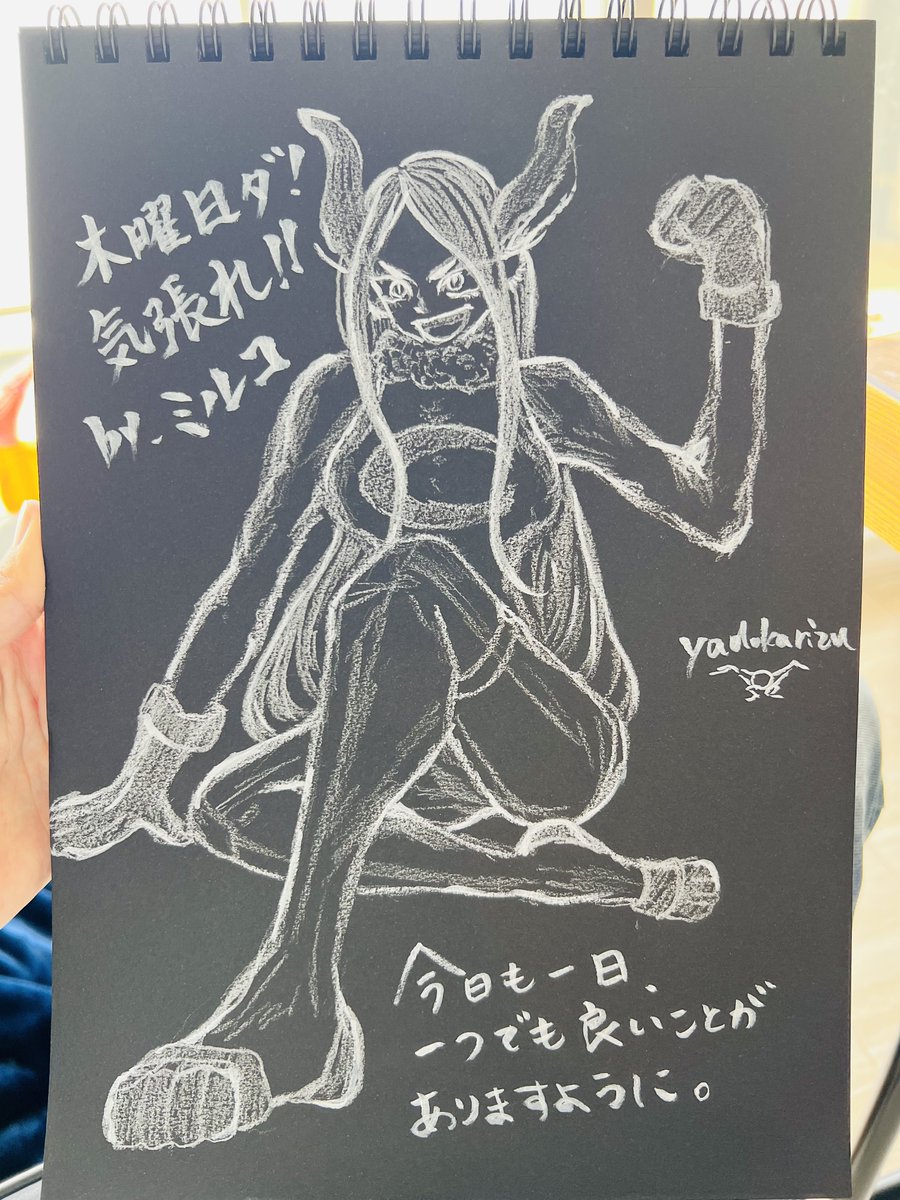 木曜日ダ!
気張れ!!
by.ミルコ
yadokarizu
今日も一日、
一つでも良いことが
ありますように。